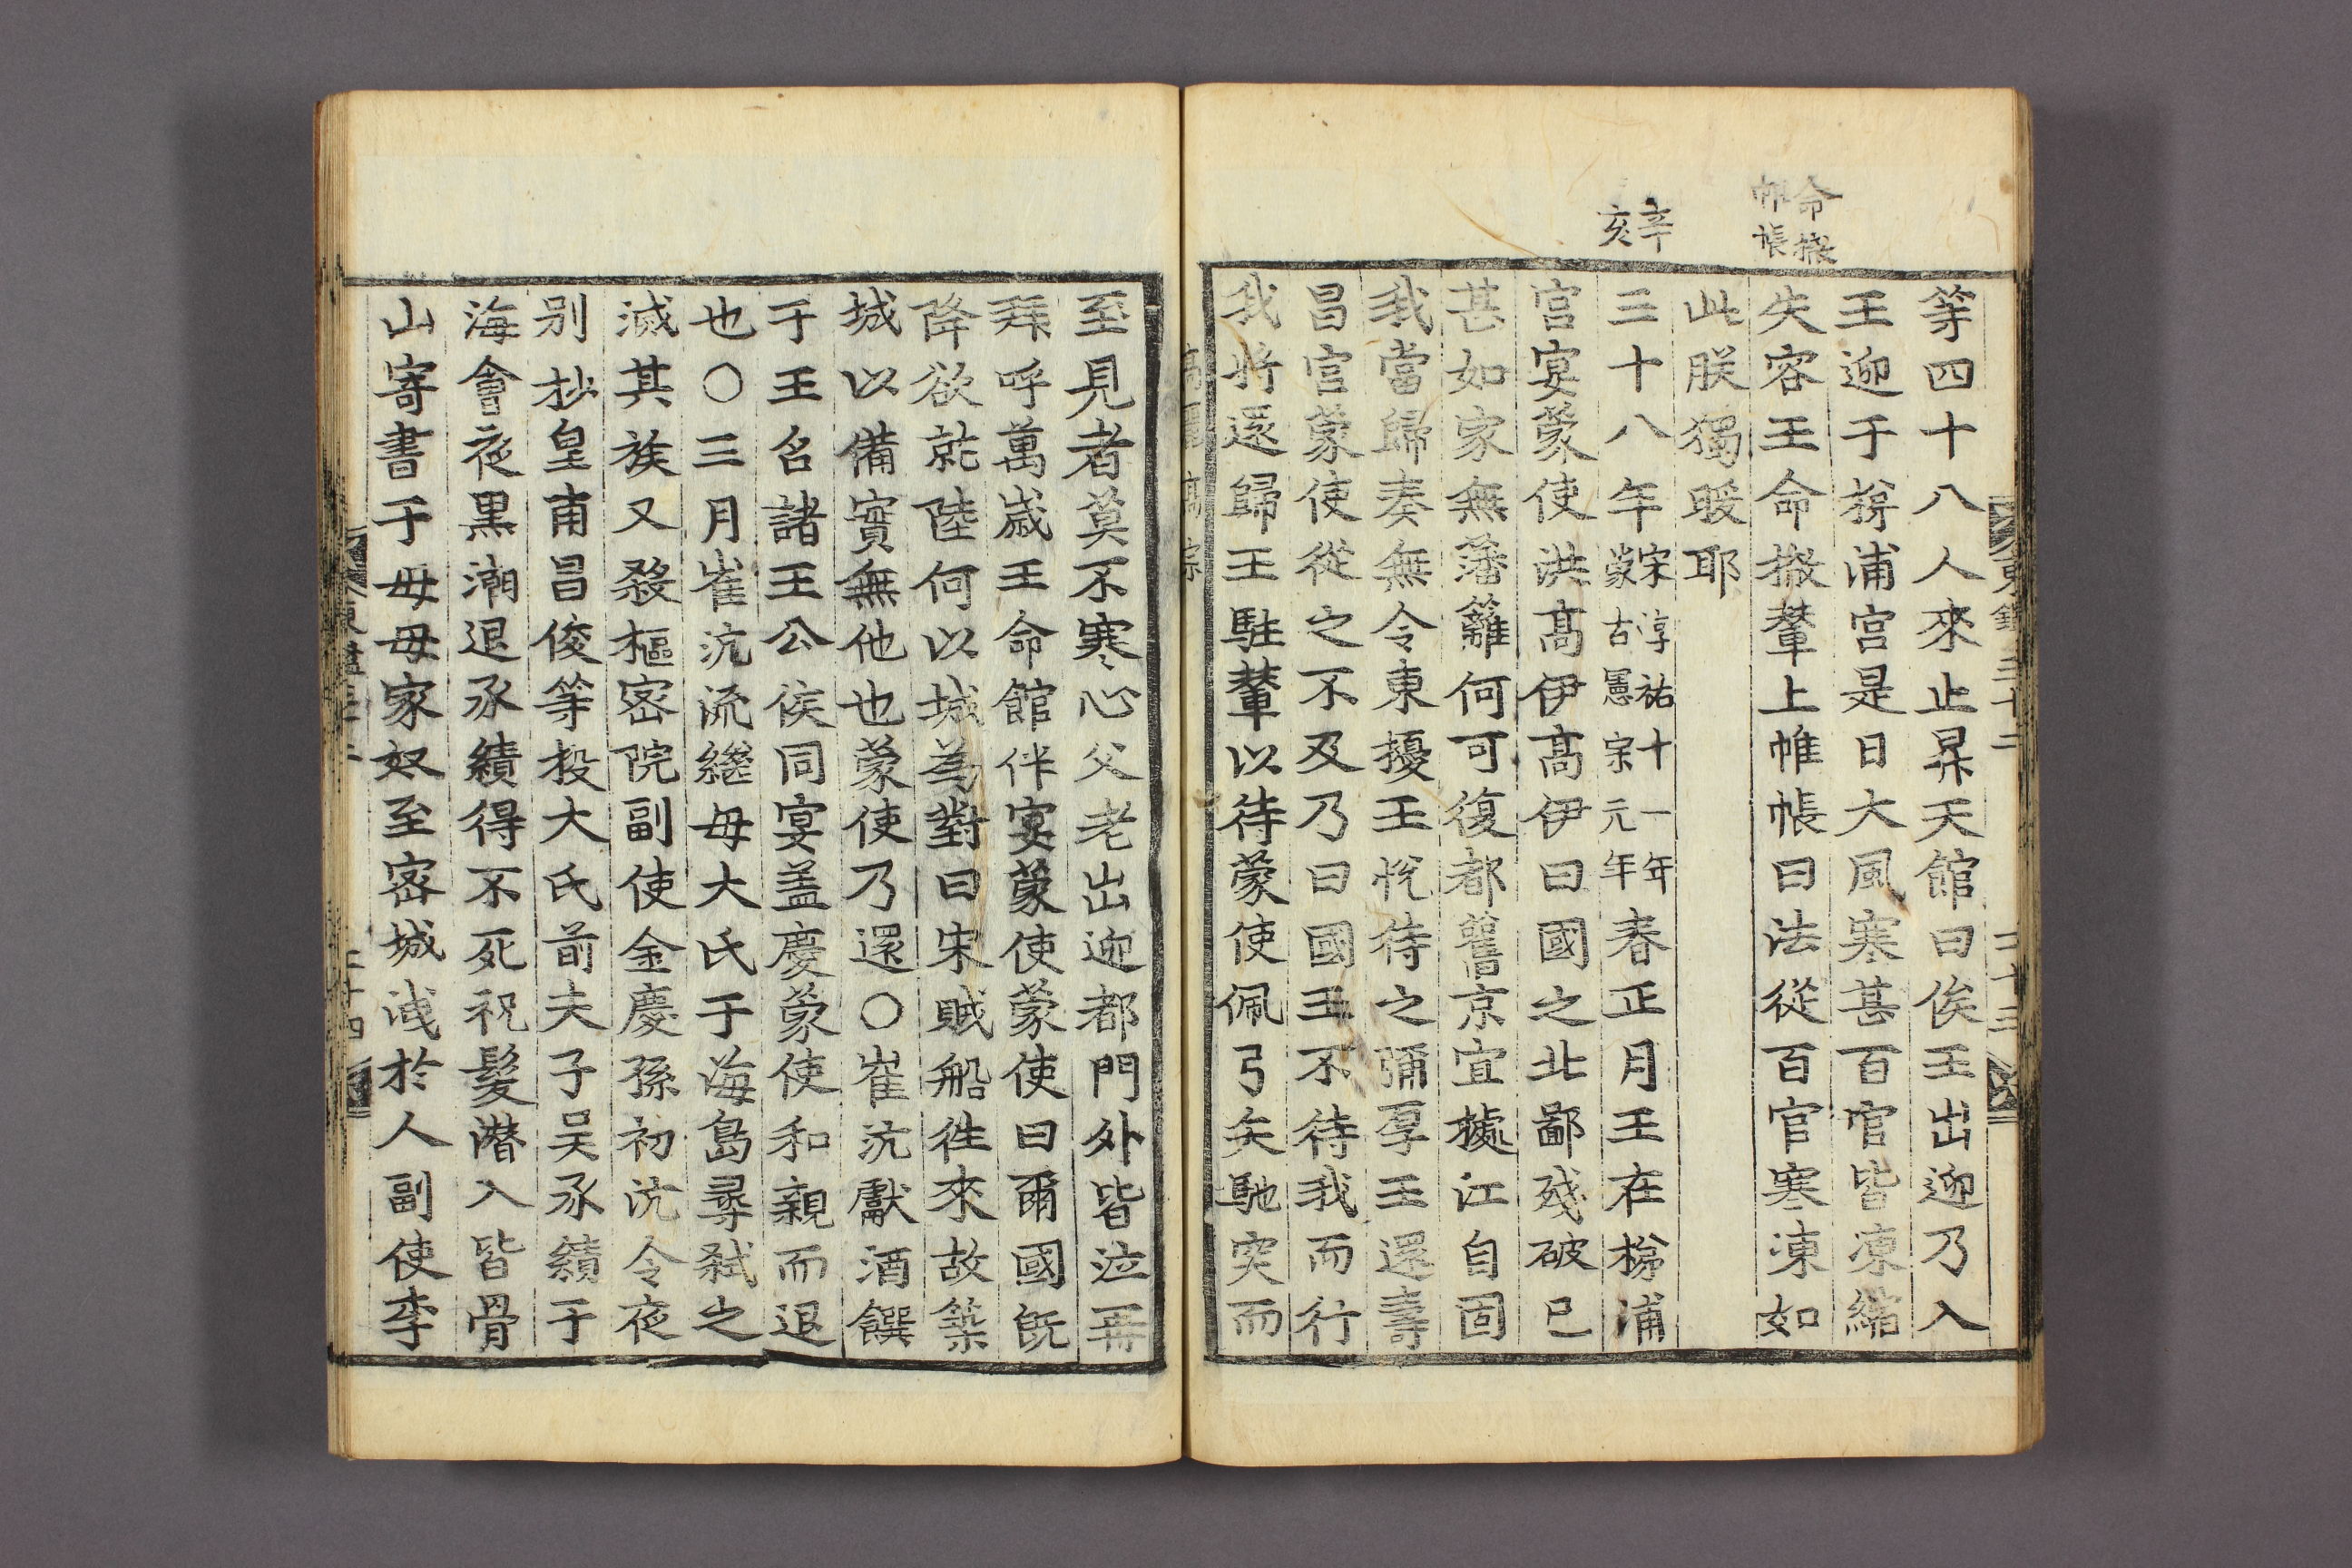 命撤
帷帳
辛
亥
等四十八人來止昇天館曰俟王出迎乃入
王迎于梯浦宮是日大風寒甚百官皆凍縮
失容王命撤輦上帷帳曰法從百官寒凍如
此朕獨暖耶
三十八年宋淳祐十一年蒙古憲宗元年春正月王在梯浦
宮宴蒙使洪髙伊髙伊曰國之北鄙殘破已
甚如家無藩籬何可復都舊京宜據江自固
我當歸奏無令東擾王悅待之彌厚王還壽
昌宮蒙使從之不及乃曰國王不待我而行
我將還歸王駐輦以待蒙使佩弓矢馳突而
髙麗髙宗
至見者莫不寒心父老出迎都門外皆泣再
拜呼萬歲王命館伴宴蒙使蒙使曰爾國旣
降欲就陸何以城為對曰宋賊船徃來故築
城以備實無他也蒙使乃還〇崔沆獻酒饌
于王名諸王公侯同宴盖慶蒙使和親而退
也〇三月崔沆流繼母大氏于海島尋弑之
滅其族又殺樞密院副使金慶孫初沆令夜
別抄皇甫昌俊等投大氏前夫子吳承績于
海會夜黒潮退承績得不死祝髮潛入皆骨
山寄書于母母家奴至密城洩於人副使李